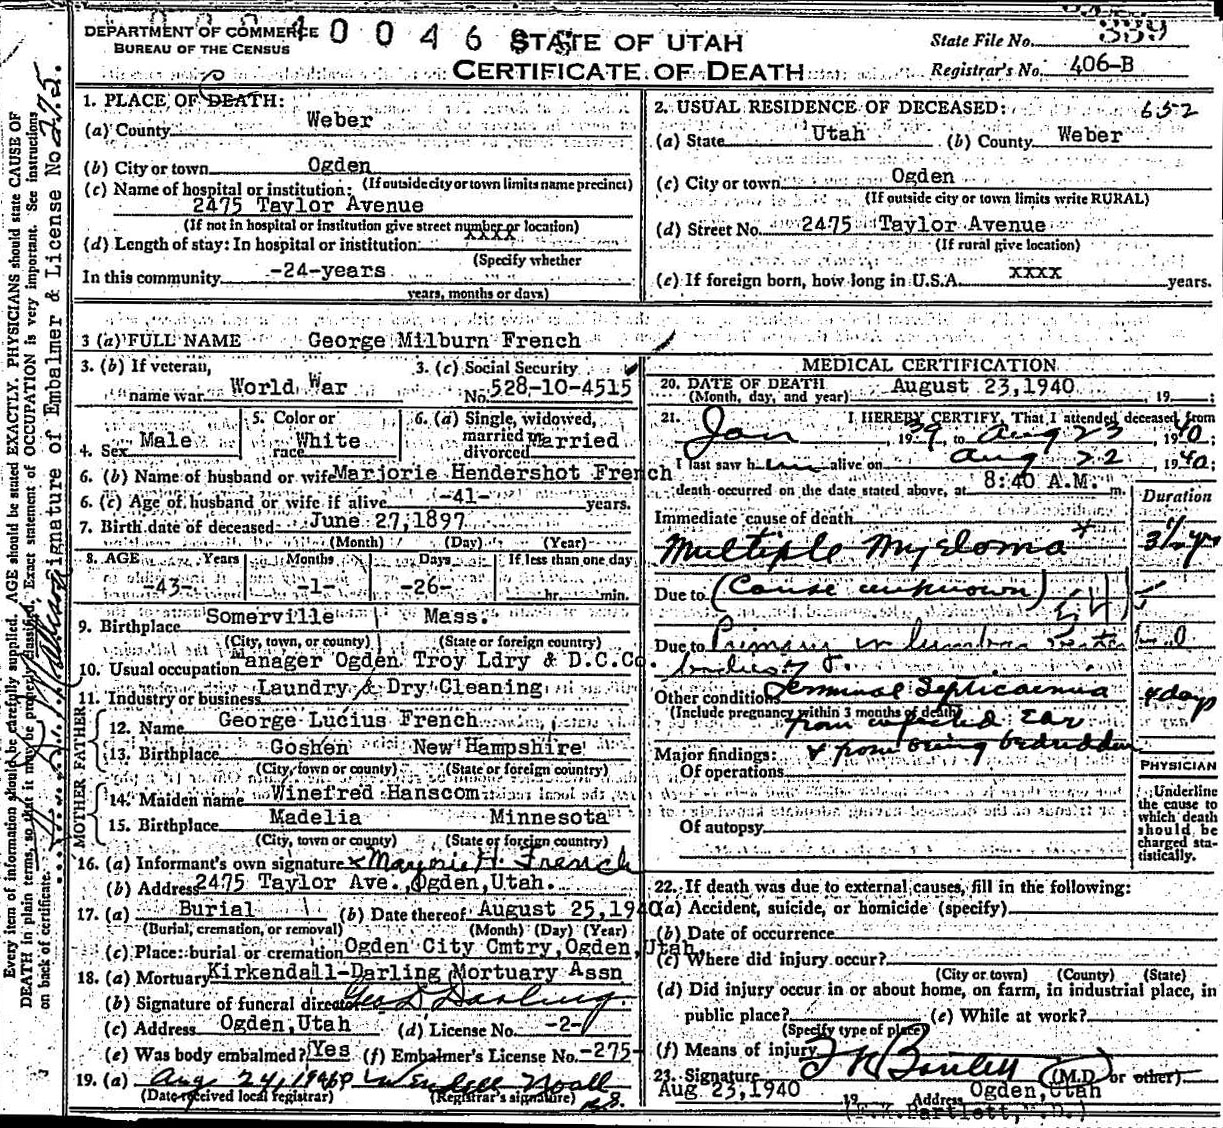 DEPARTMENT OF COMMERCE
BUREAU OF THE CENSUS
STATE OF UTAH
CERTIFICATE OF DEATH
State File No. 339
Registrar's No. 406-B
1. PLACE OF DEATH:
(a) County Weber
(b) City or town Ogden
(If outside city or town limits name precinct)
(c) Name of hospital or institution:
2475 Taylor Avenue
(If not in hospital or institution give street number or location)
(d) Length of stay: In hospital or institution xxxx
(Specify whether
In this community -24-years
years, months or days)
2. USUAL RESIDENCE OF DECEASED: 652
(a) State Utah (b) County Weber
(c) City or town Ogden
(If outside city or town limits write RURAL)
(d) Street No. 2475 Taylor Avenue
(If rural give location)
(e) If foreign born, how long in U.S.A. xxxx years.
3 (a) FULL NAME George Milburn French
3. (b) If veteran, name war World War
3. (c) Social Security No. 528-10-4515
4. Sex Male
5. Color or race White
6. (a) Single, widowed, married divorced Married
6. (b) Name of husband or wife Marjorie Hendershot French
6. (c) Age of husband or wife if alive -41- years.
7. Birth date of deceased June 27,1897
(Month) (Day) (Year)
8. AGE Years Months Days If less than one day
-43- -1- -26- hr. min.
9. Birthplace Somerville Mass.
(City, town, or county) (State or foreign country)
10. Usual occupation Manager Ogden Troy Ldry & D.C.Co.
11. Industry or business Laundry & Dry Cleaning
FATHER
12. Name George Lucius French
13. Birthplace Goshen New Hampshire
(City, town or county) (State or foreign country)
MOTHER
14. Maiden name Winefred Hanscom
15. Birthplace Madelia Minnesota
(City, town or county) (State or foreign country)
16. (a) Informant's own signature x Marjorie H. French
(b) Address 2475 Taylor Ave., Ogden,Utah.
17. (a) Burial (b) Date thereof August 25,1940
(Burial, cremation, or removal) (Month) (Day) (Year)
(c) Place: burial or cremation Ogden City Cmtry,Ogden,Utah.
18. (a) Mortuary Kirkendall-Darling Mortuary Assn
(b) Signature of funeral director Geo D Darling.
(c) Address Ogden,Utah (d) License No. -2-
(e) Was body embalmed? Yes (f) Embalmer's License No. -275-
19. (a) Aug 24, 1940 Wendell Noall
(Date received local registrar) (Registrar's signature)
MEDICAL CERTIFICATION
20. DATE OF DEATH August 23,1940 19 ;
(Month, day, and year)
21. I HEREBY CERTIFY, That I attended deceased from
Jan, 1939, to Aug 23, 1940;
I last saw him alive on Aug 22, 1940;
death occurred on the date stated above, at 8:40 A.M. m.
Duration
Immediate cause of death
Multiple Myeloma 3½ yrs
Due to (Cause unknown)
Due to Primary in lumbar
Other conditions Terminal Septicaemia 4 days
(Include pregnancy within 3 months of death)
from infected Ear
& from being bedridden
Major findings:
Of operations
Of autopsy
PHYSICIAN
Underline the cause to which death should be charged statistically.
22. If death was due to external causes, fill in the following:
(a) Accident, suicide, or homicide (specify)
(b) Date of occurrence
(c) Where did injury occur?
(City or town) (County) (State)
(d) Did injury occur in or about home, on farm, in industrial place, in
public place? (e) While at work?
(Specify type of place)
(f) Means of injury
23. Signature F K Bartlett (M.D. or other)
Aug 23,1940 19 Address Ogden,Utah
(F.K.Bartlett,M.D.)
Every item of information should be carefully supplied. AGE should be stated EXACTLY. PHYSICIANS should state CAUSE OF
DEATH in plain terms, so that it may be properly classified. Exact statement of OCCUPATION is very important. See instructions
on back of certificate.
Signature of Embalmer & License No 275.